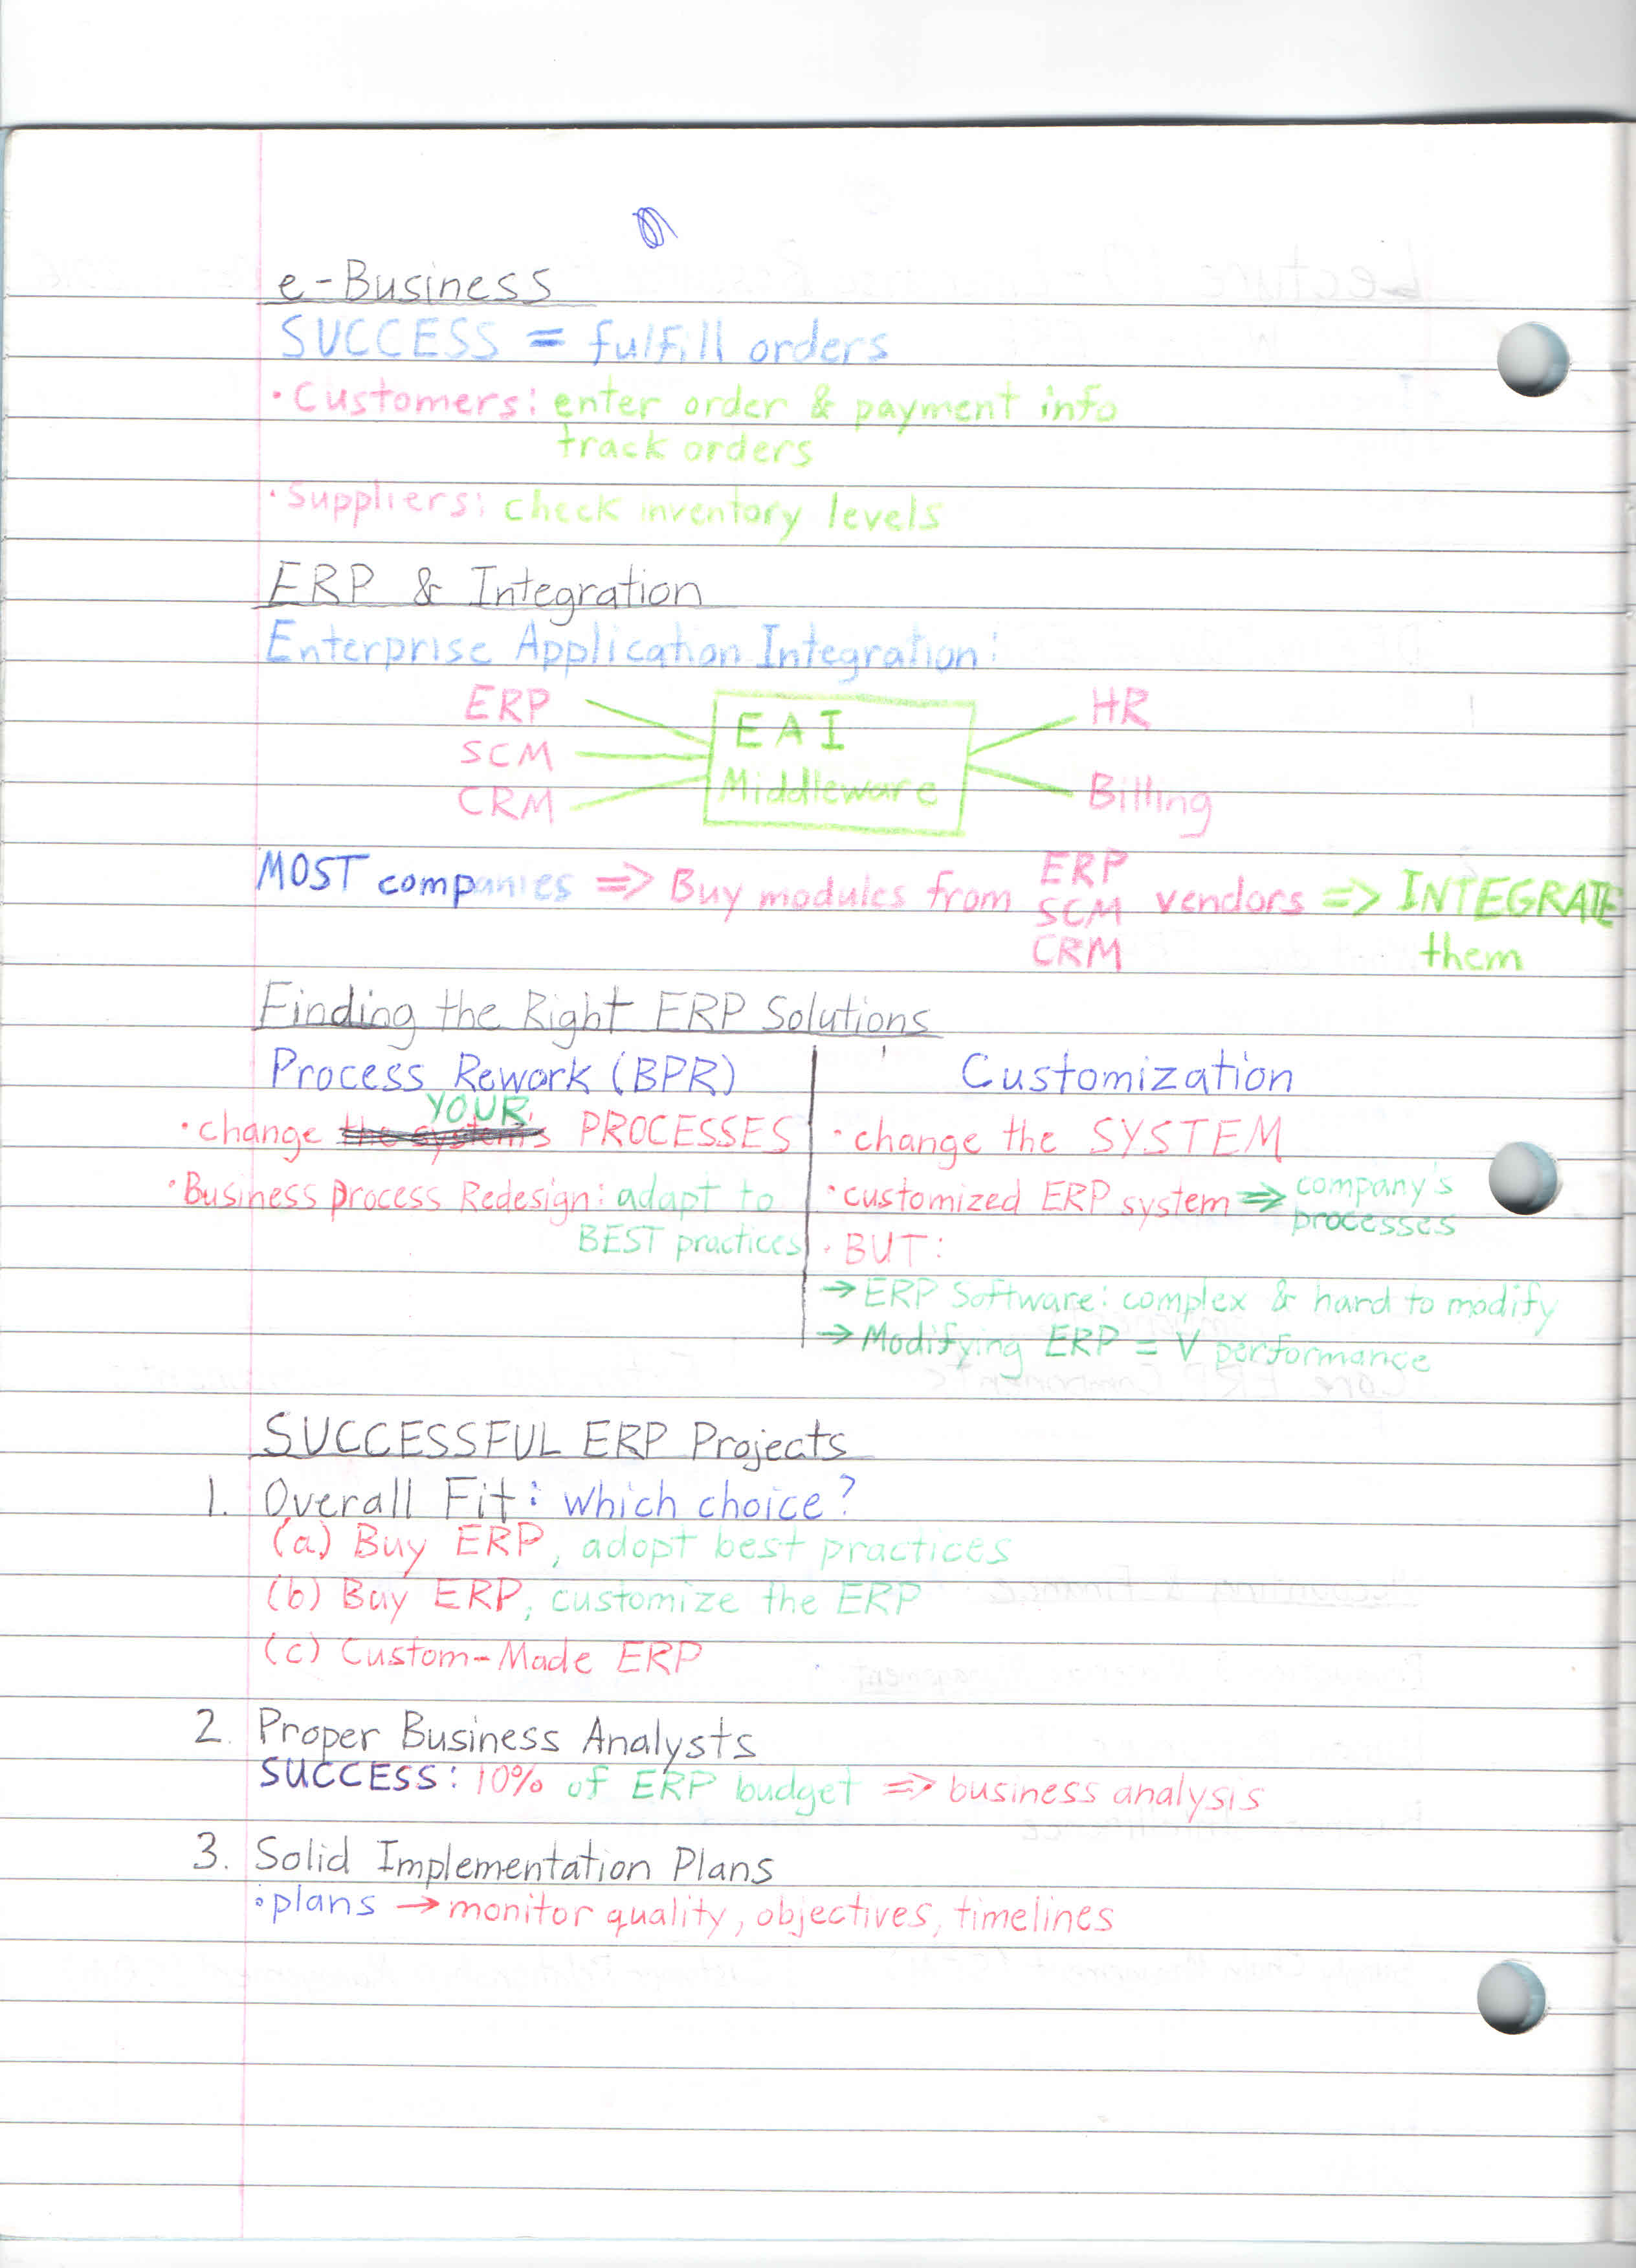 e-Business
SUCCESS = fulfill orders
• Customers: enter order & payment info
track orders
• Suppliers: check inventory levels
ERP & Integration
Enterprise Application Integration:
ERP
SCM
CRM
EAI
Middleware
HR
Billing
MOST companies => Buy modules from ERP SCM CRM vendors => INTEGRATE
them
Finding the Right ERP Solutions
Process Rework (BPR)
• change the system's YOUR PROCESSES
• Business Process Redesign: adapt to
BEST practices
Customization
• change the SYSTEM
• customized ERP system => company's
processes
• BUT:
→ ERP Software: complex & hard to modify
→ Modifying ERP = V performance
SUCCESSFUL ERP Projects
1. Overall Fit: which choice?
(a) Buy ERP, adopt best practices
(b) Buy ERP, customize the ERP
(c) Custom-Made ERP
2. Proper Business Analysts
SUCCESS: 10% of ERP budget => business analysis
3. Solid Implementation Plans
• plans → monitor quality, objectives, timelines